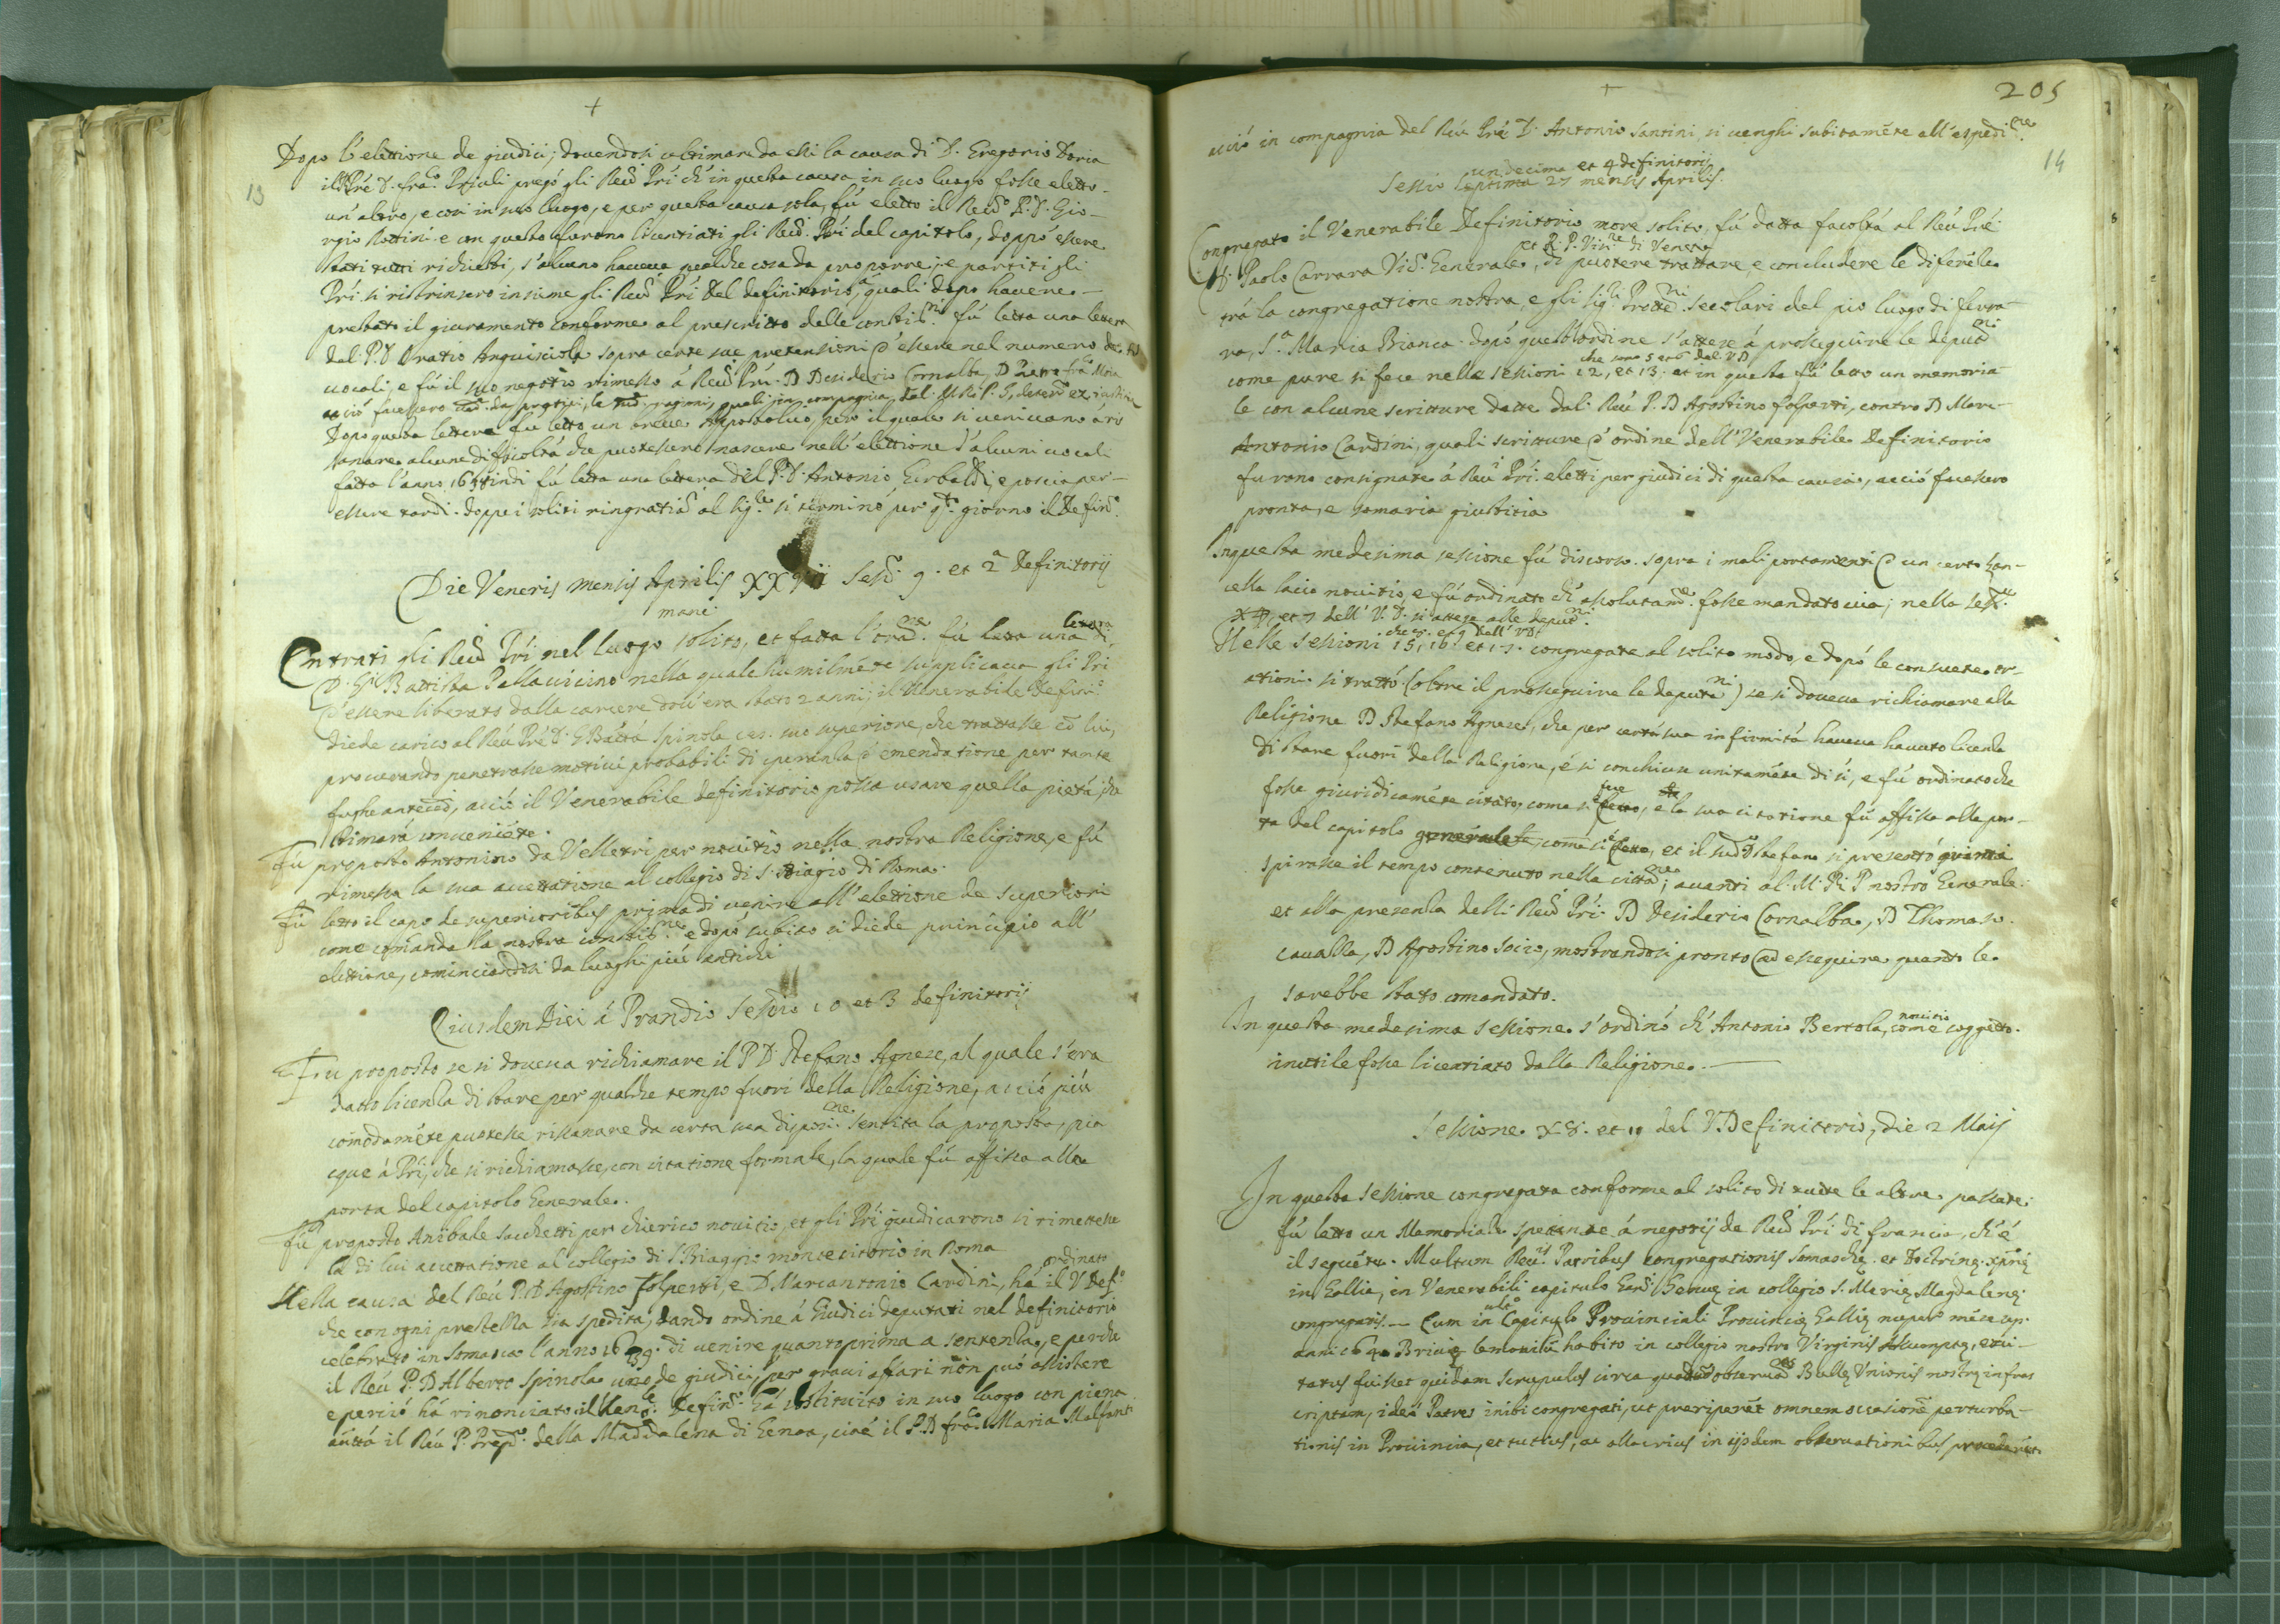 +
Dopo l'elettione de giudici; dovendosi ultimare da essi la causa di D. Gregorio Doria
13
il Pré D. Fra.co Priuli pregò gli Reu.di Pri ch'in questa causa in suo luogo fosse eletto
un'altro, e così in suo luogo, e per questa causa sola, fù eletto il Reu.do P. D. Gio-
rgio Bottini. e con questo furono licentiati gli Reu.di Pri del capitolo, doppò essere
stati tutti richiesti, s'alcuno haveva qualche cosa da proporre; e partiti gli
Pri. si ristrinsero insieme gli Reu.di Pri del definitorio, quali dopo havere
prestato il giuramento conforme al prescritto delle constit.ni fù letta una lettera
del P. D. Oratio Anguisciola sopra certe sue pretensioni d'essere nel numero de
vocali, e fù il suo negotio rimesso á Reu.di Pri. D Desiderio Cornalba, D
acciò facessero
Dopo questa lettera fu letto un breve Appostolico, per il quale si venivano á ri
sanare alcune dificoltà che puotessero nascere nell'elettione d'alcuni vocali
fatta l'anno indi fù letta una lettera del P. D. Antonio Gurbaldi, e poscia per
essere tardi. doppo i soliti ringratia.ti al Sig.re si terminò per q.to giorno il Defin.o
Die Veneris mensis Aprilis Sess.o 9. et 2.a Definitorij
mane.
Entrati gli Reu.di Pri nel luogo solito, et fatta l'ora.ne fù letta una lettera di
D. Gi. Battista Pallavicino nella quale humilmẽte supplicava gli Pri
d'essere liberato dalla carcere dov'era stato 2 anni; il Venerabile Defin.o
diede carico al Reu. Pré D. G Batta Spinola suo superiore, che trattasse cõ lui,
procurando penetrasse motivi probabili di speranza d'emendatione per tante
fughe anteced., acciò il Venerabile definitorio possa usare quella pietà, che
stimarà conveniẽte.
Fù proposto Antonino da Velletri per novitio nella nostra Religione, e fù
rimessa la sua accettatione al collegio di S. Biagio di Roma.
Fù letto il capo de superioribus prima di venire all'elettione de superiori
come comanda la nostra constit.ne e dopò subito si diede principio all'
elettione, cominciandosi da luoghi più antichi
Eiusdem Diei á Prandio Sessio 10 et 3 definitorij
Fu proposto se si doveva richiamare il P D. Stefano Agnese, al quale s'era
datto licenza di stare per qualche tempo fuori della Religione, acciò più
comodamẽte puotesse risanare da certa sua disposi.ne Sentita la proposta, pia
cque á Pri, che si richiamasse, con citatione formale, la quale fù affissa alla
porta del capitolo Generale.
Fù proposto Anibale Sacchetti per chierico novitio, et gli Pri giudicarono si rimettesse
la di lui accettatione al collegio di S Biaggio monte citorio in Roma
Nella causa del Reu. P. D Agostino Folperti, e D. Marcantonio Cardini, há ordinato il V Def.o
che con ogni prestezza sia spedita, dando ordine á Giudici deputati nel definitorio
celebrato in Somasca l'anno 1639. di venire quanto prima a sentenza, e perche
il Reu. P. D Alberto Spinola uno de giudici, per gravi affari non può assistere
e perciò há rinonciato il Vene. Defin.o há sostituito in suo luogo con piena
auttà il Reu P. Prep.o della Maddalena di Genoa, cioè il P. D fra.co Maria Malfanti
+
205
acciò in compagnia del Reu Pré D. Antonio Santini si venghi subitamẽte all'espedi.ne
14
Sessio septima undecima et 4 definitorij 27 mensis Aprilis.
Congregato il Venerabile Definitorio more solito, fù datta facoltà al Reu Pré
D. Paolo Carrara Vic.o Generale, et R. P. Vis.re di Venetia di puotere trattare, e concludere le diferẽze
trà la congregatione nostra, e gli Sig.ri Protet.ri secolari del pio luogo di ferra
ra, S.a Maria Bianca. dopò questo ordine s'attese á proseguire le deput.ni
come pure si fece nelle sessioni 12, et 13. che sono 5 et 6 del V D et in questa fù letto un memoria
le con alcune scritture datte dal Reu P. D Agostino folperti, contro D Marc-
Antonio Cardini, quali scritture d'ordine dell'Venerabile Definitorio
furono consignate á Reu.i Pri. eletti per giudici di questa causa, acciò facessero
pronta, e somaria giustitia
In questa medesima sessione fù discorso sopra i mali portamenti d'un certo Zan-
cella laico novitio, e fù ordinato ch'assolutam.te fosse mandato via; nella sess.ne
et 7 dell' V. D. si attese alle deput.ni
Nelle sessioni 15, 16. et 17. che 8. et 9 dell' VD. congregate al solito modo, e dopò le consuete or-
ationi si trattò (oltre il proseguire le deputa.ni) se si doveva richiamare alla
Religione D Stefano Agnese, che per certa sua infirmità haveva havuto licenza
di stare fuori della Religione, é si conchiuse unitamẽte di sì, e fù ordinato che
fosse giuridicamẽte citato, come si fece, e la sua citatione fù affissa alla por-
ta del capitolo generale, come si è fatto, et il sud.o Stefano si presentò
spirasse il tempo contenuto nella citta.ne; avanti al M. R. P nostro Generale.
et alla presenza delli Reu.di Pri D Desiderio Cornalba, D Thomaso
cavalla, D Agostino Socio, mostrandosi pronto ad esseguire quanto le
sarebbe stato comandato.
In questa medesima sessione s'ordinò ch'Antonio Bertola, novitio come soggetto
inutile fosse licentiato dalla Religione.
Sessione X8. et 10 del V. Definitorio, die 2 Maij
In questa sessione congregata conforme al solito di tutte le altre passate.
fù letto un Memoriale spettante á negotij de Reu.di Pri di francia, ch'é
il seguẽte. Multum Reu.dis Patribus congregationis Somaschę et Doctrinę xp̃nę
in Gallia, in Venerabili capitulo Gen.li Genuę in collegio S. Marię Magdalenę
congregatis. — Cum in ult.o Capitulo Provinciali Provincię Gallię nuper mẽse
anni 1640 Brivę lemovicũ habito in collegio nostro Virginis Assumptę, exci-
tatus fuisset quidam scrupulus circa observa.nes Bullę Unionis nostrę infras
criptam, ideò Patres inibi congregati, ut preriperẽt omnem occasionẽ perturba-
tionis in Provincia, et tutius, ac allacrius in ijsdem observationibus procederẽt